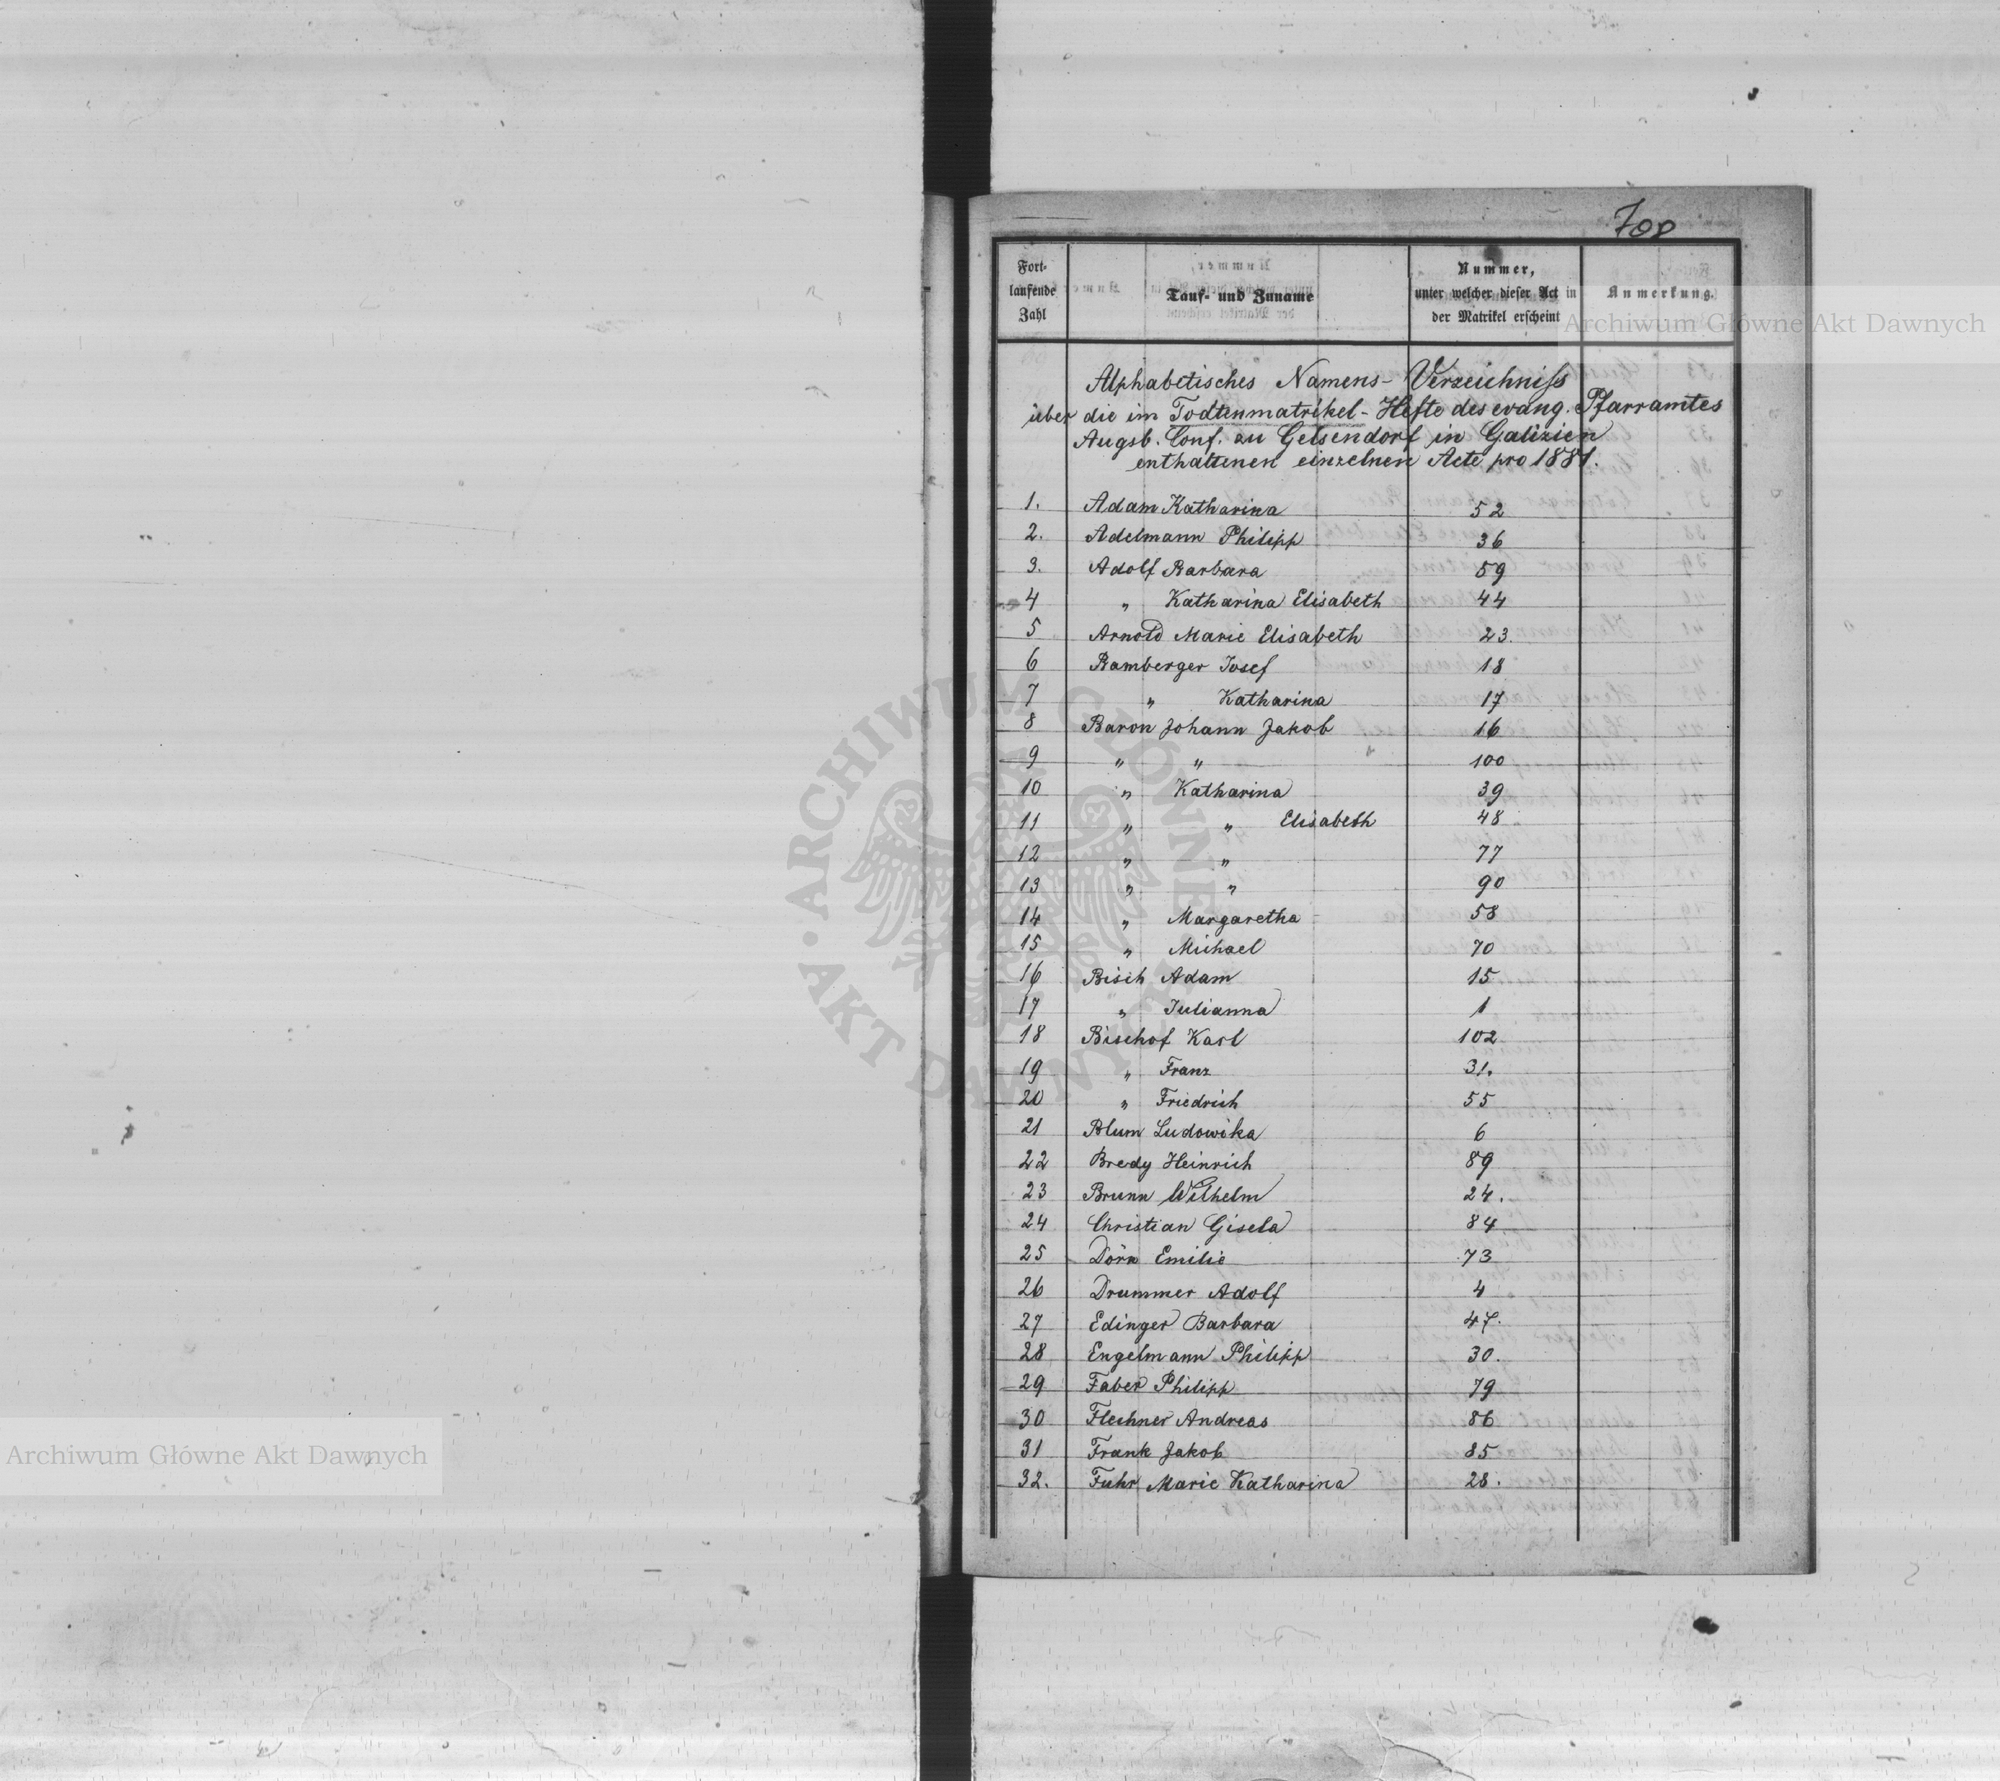 708
Fort-
laufende
Zahl
Tauf- und Zuname
Nummer,
unter welcher dieser Act in
der Matrikel erscheint
Anmerkung.
Archiwum Główne Akt Dawnych
Alphabetisches Namens-Verzeichniss
über die im Todtenmatrikel-Hefte des evang. Pfarramtes
Augsb. Conf. zu Gelsendorf in Galizien
enthaltenen einzelnen Acte pro 1881.
1. Adam Katharina 52
2. Adelmann Philipp 36
3. Adolf Barbara 59
4 " Katharina Elisabeth 44
5 Arnold Marie Elisabeth 23.
6 Bamberger Josef 18
7 " Katharina 17
8 Baron Johann Jakob 16
9 " " 100
10 " Katharina 39
11 " " Elisabeth 48
12 " " 77
13 " " 90
14 " Margaretha 58
15 " Michael 70
16 Bisch Adam 15
17 " Julianna 1
18 Bischof Karl 102
19 " Franz 31.
20 " Friedrich 55
21 Blum Ludowika 6
22 Bredy Heinrich 89
23 Brunn Wilhelm 24.
24 Christian Gisela 84
25 Dörn Emilie 73
26 Drummer Adolf 4
27 Edinger Barbara 47.
28 Engelmann Philipp 30.
29 Faber Philipp 79
30 Flechner Andreas 86
31 Frank Jakob 85
32. Fuhr Marie Katharina 28.
ARCHIWUM GŁÓWNE AKT DAWNYCH
Archiwum Główne Akt Dawnych